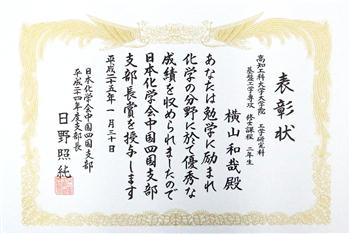 表彰状
高知工科大学大学院 工学研究科
基盤工学専攻 修士課程 二年生
横山和哉殿
あなたは勉学に励まれ
化学の分野に於て優秀な
成績を収められましたので
日本化学会中国四国支部
支部長賞を授与します
平成二十五年一月三十日
日本化学会中国四国支部
平成二十四年度支部長
日野照純